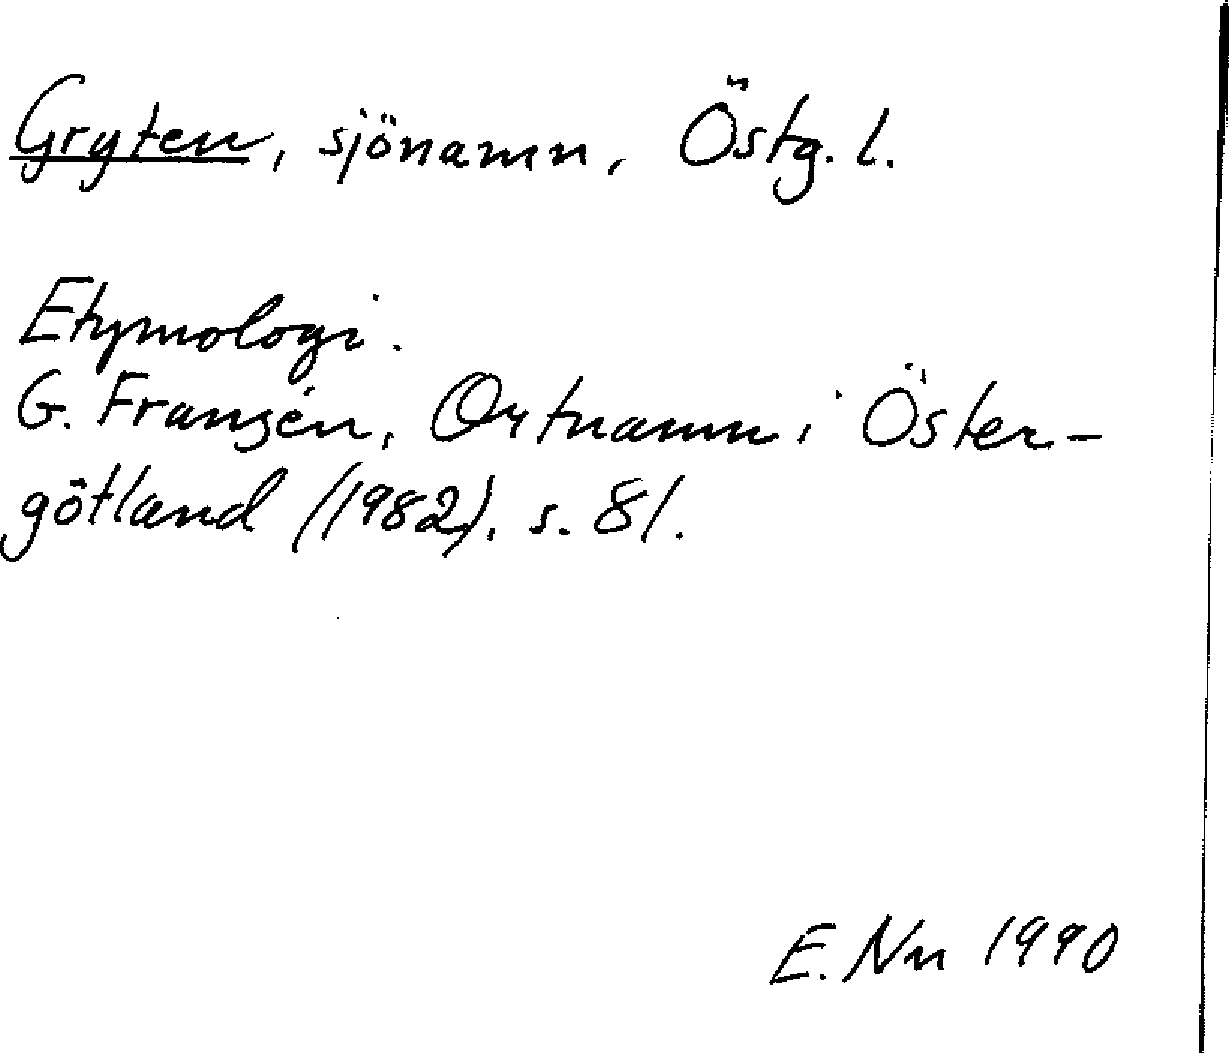 Gryten, sjönamn, Östg. l.
Etymologi.
G. Franzén, Ortnamn i Öster-
götland (1982), s. 81.
E. Nn 1990